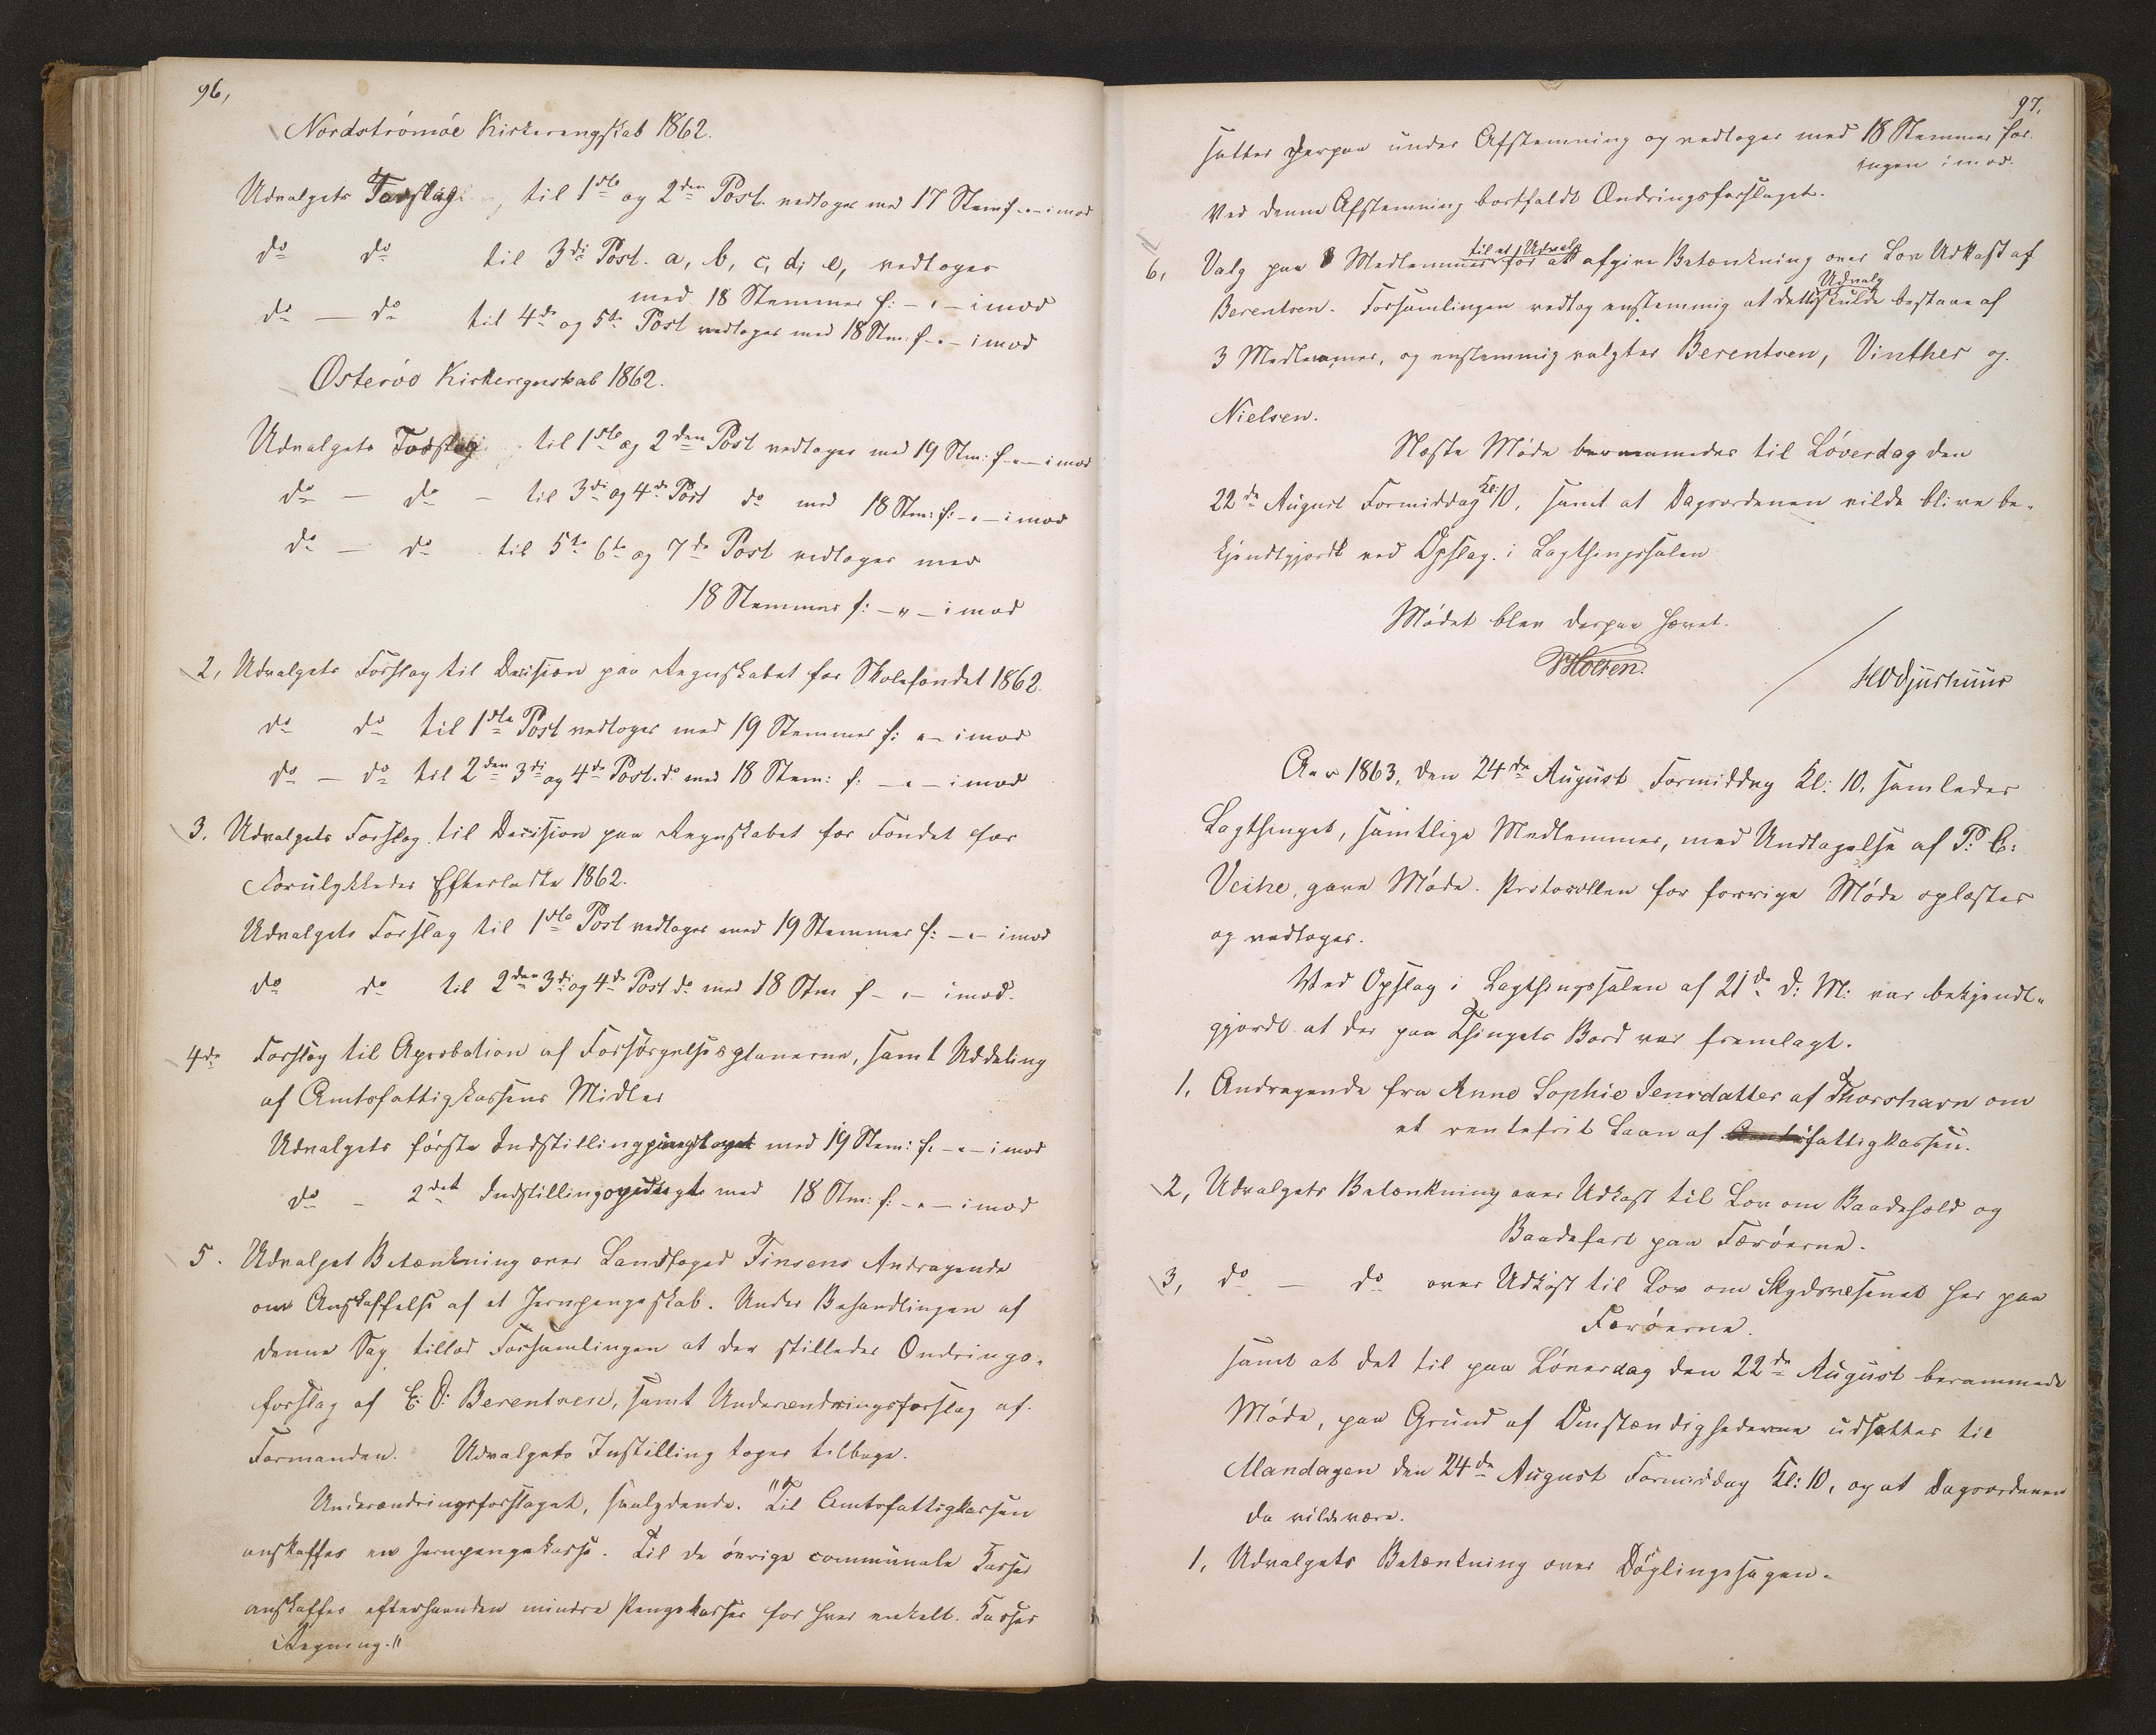 96,
Nordströmöe Kirkerengskab 1862.
Udvalgets Forslag til 1ste og 2den Post. vedtoges med 17 Stem f. „ imod
do do til 3di Post. a, b, c, d, e, vedtoges
med 18 Stemmer f: – „ – imod
do — do til 4de og 5te Post vedtoges med 18 Stm: f – „ – imod
Österöe Kirkeregnskab 1862.
Udvalgets Forslag til 1ste og 2den Post vedtoges med 19 Stm: f – „ – imod
do — do – til 3di og 4de Post do med 18 Stm: f: – „ – imod
do — do til 5te 6te og 7de Post vedtoges med
18 Stemmer f: – „ – imod
2, Udvalgets Forslag til Decision paa Regnskabet for Skolefondet 1862.
do do til 1ste Post vedtoges med 19 Stemmer f: „ – imod
do — do til 2den 3di og 4de Post. do med 18 Stem: f: – „ – imod
3. Udvalgets Forslag til Decision paa Regnskabet for Fondet for
Forulykkedes Efterladte 1862.
Udvalgets Forslag til 1ste Post vedtoges med 19 Stemmer f: – „ – imod
do do til 2den 3di og 4de Post do med 18 Stm f – „ – imod.
4de Forslag til Aprobation af Forsörgelsesplanerne, samt Uddeling
af Amtsfattigkassens Midler
Udvalgets förste Indstilling med 19 Stem: f: – „ – imod
do – 2det Indstilling med 18 Stm: f: – „ – imod
5. Udvalget Betænkning over Landfoged Finsens Andragende
om Anskaffelse af et Jernpengeskab. Under Behandlingen af
denne Sag tillod Forsamlingen at der stilledes Ændrings-
forslag af E: O: Berentsen, samt Underændringsforslag af
Formanden. Udvalgets Instilling toges tilbage.
Underændringsforslaget, saalydende. "Til Amtsfattigkassen
anskaffes en Jernpengekasse. Til de övrige communale Kasser
anskaffes efterhaanden mindre Pengekasser for hver enkelt Kasses
Regning."
97.
sattes derpaa under Afstemning og vedtoges med 18 Stemmer for
ingen imod.
Ved denne Afstemning bortfaldt Ændringsforslaget.
6, Valg paa 8 Medlemmer til et Udvalg for at afgive Betænkning over Lov Udkast af
Berentsen. Forsamlingen vedtog enstemmig at dette Udvalg skulde bestaae af
3 Medlemmer, og enstemmig valgtes Berentsen, Vinther og
Nielsen.
Næste Möde berammedes til Löverdag den
22de August Formiddag Kl: 10, samt at Dagsordenen vilde blive be-
kjendtgjordt ved Opslag i Lagthingssalen
Mödet blev derpaa hævet.
HODjurhuus
Aar 1863, den 24de August Formiddag Kl: 10, samledes
Lagthinget, samtlige Medlemmer, med Undtagelse af P: C:
Veihe, gave Möde. Protocollen for forrige Möde oplæstes
og vedtoges.
Ved Opslag i Lagthingssalen af 21de d: M: var bekjendt-
gjordt at der paa Thingets Bord var fremlagt.
1, Andragende fra Anne Sophie Jensdatter af Thorshavn om
et rentefrit Laan af Amtsfattigkassen.
2, Udvalgets Betænkning over Udkast til Lov om Baadehold og
Baadefart paa Færöerne.
3, do — do over Udkast til Lov om Skydsvæsenet her paa
Færöerne.
samt at det til paa Löverdag den 22de August berammede
Möde, paa Grund af Omstændighederne udsattes til
Mandagen den 24de August Formiddag Kl: 10, og at Dagsordenen
da vilde være.
1, Udvalgets Betænkning over Döglingesagen.